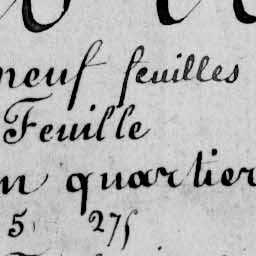 neuf feuilles
Feuille
un quartier
5 275